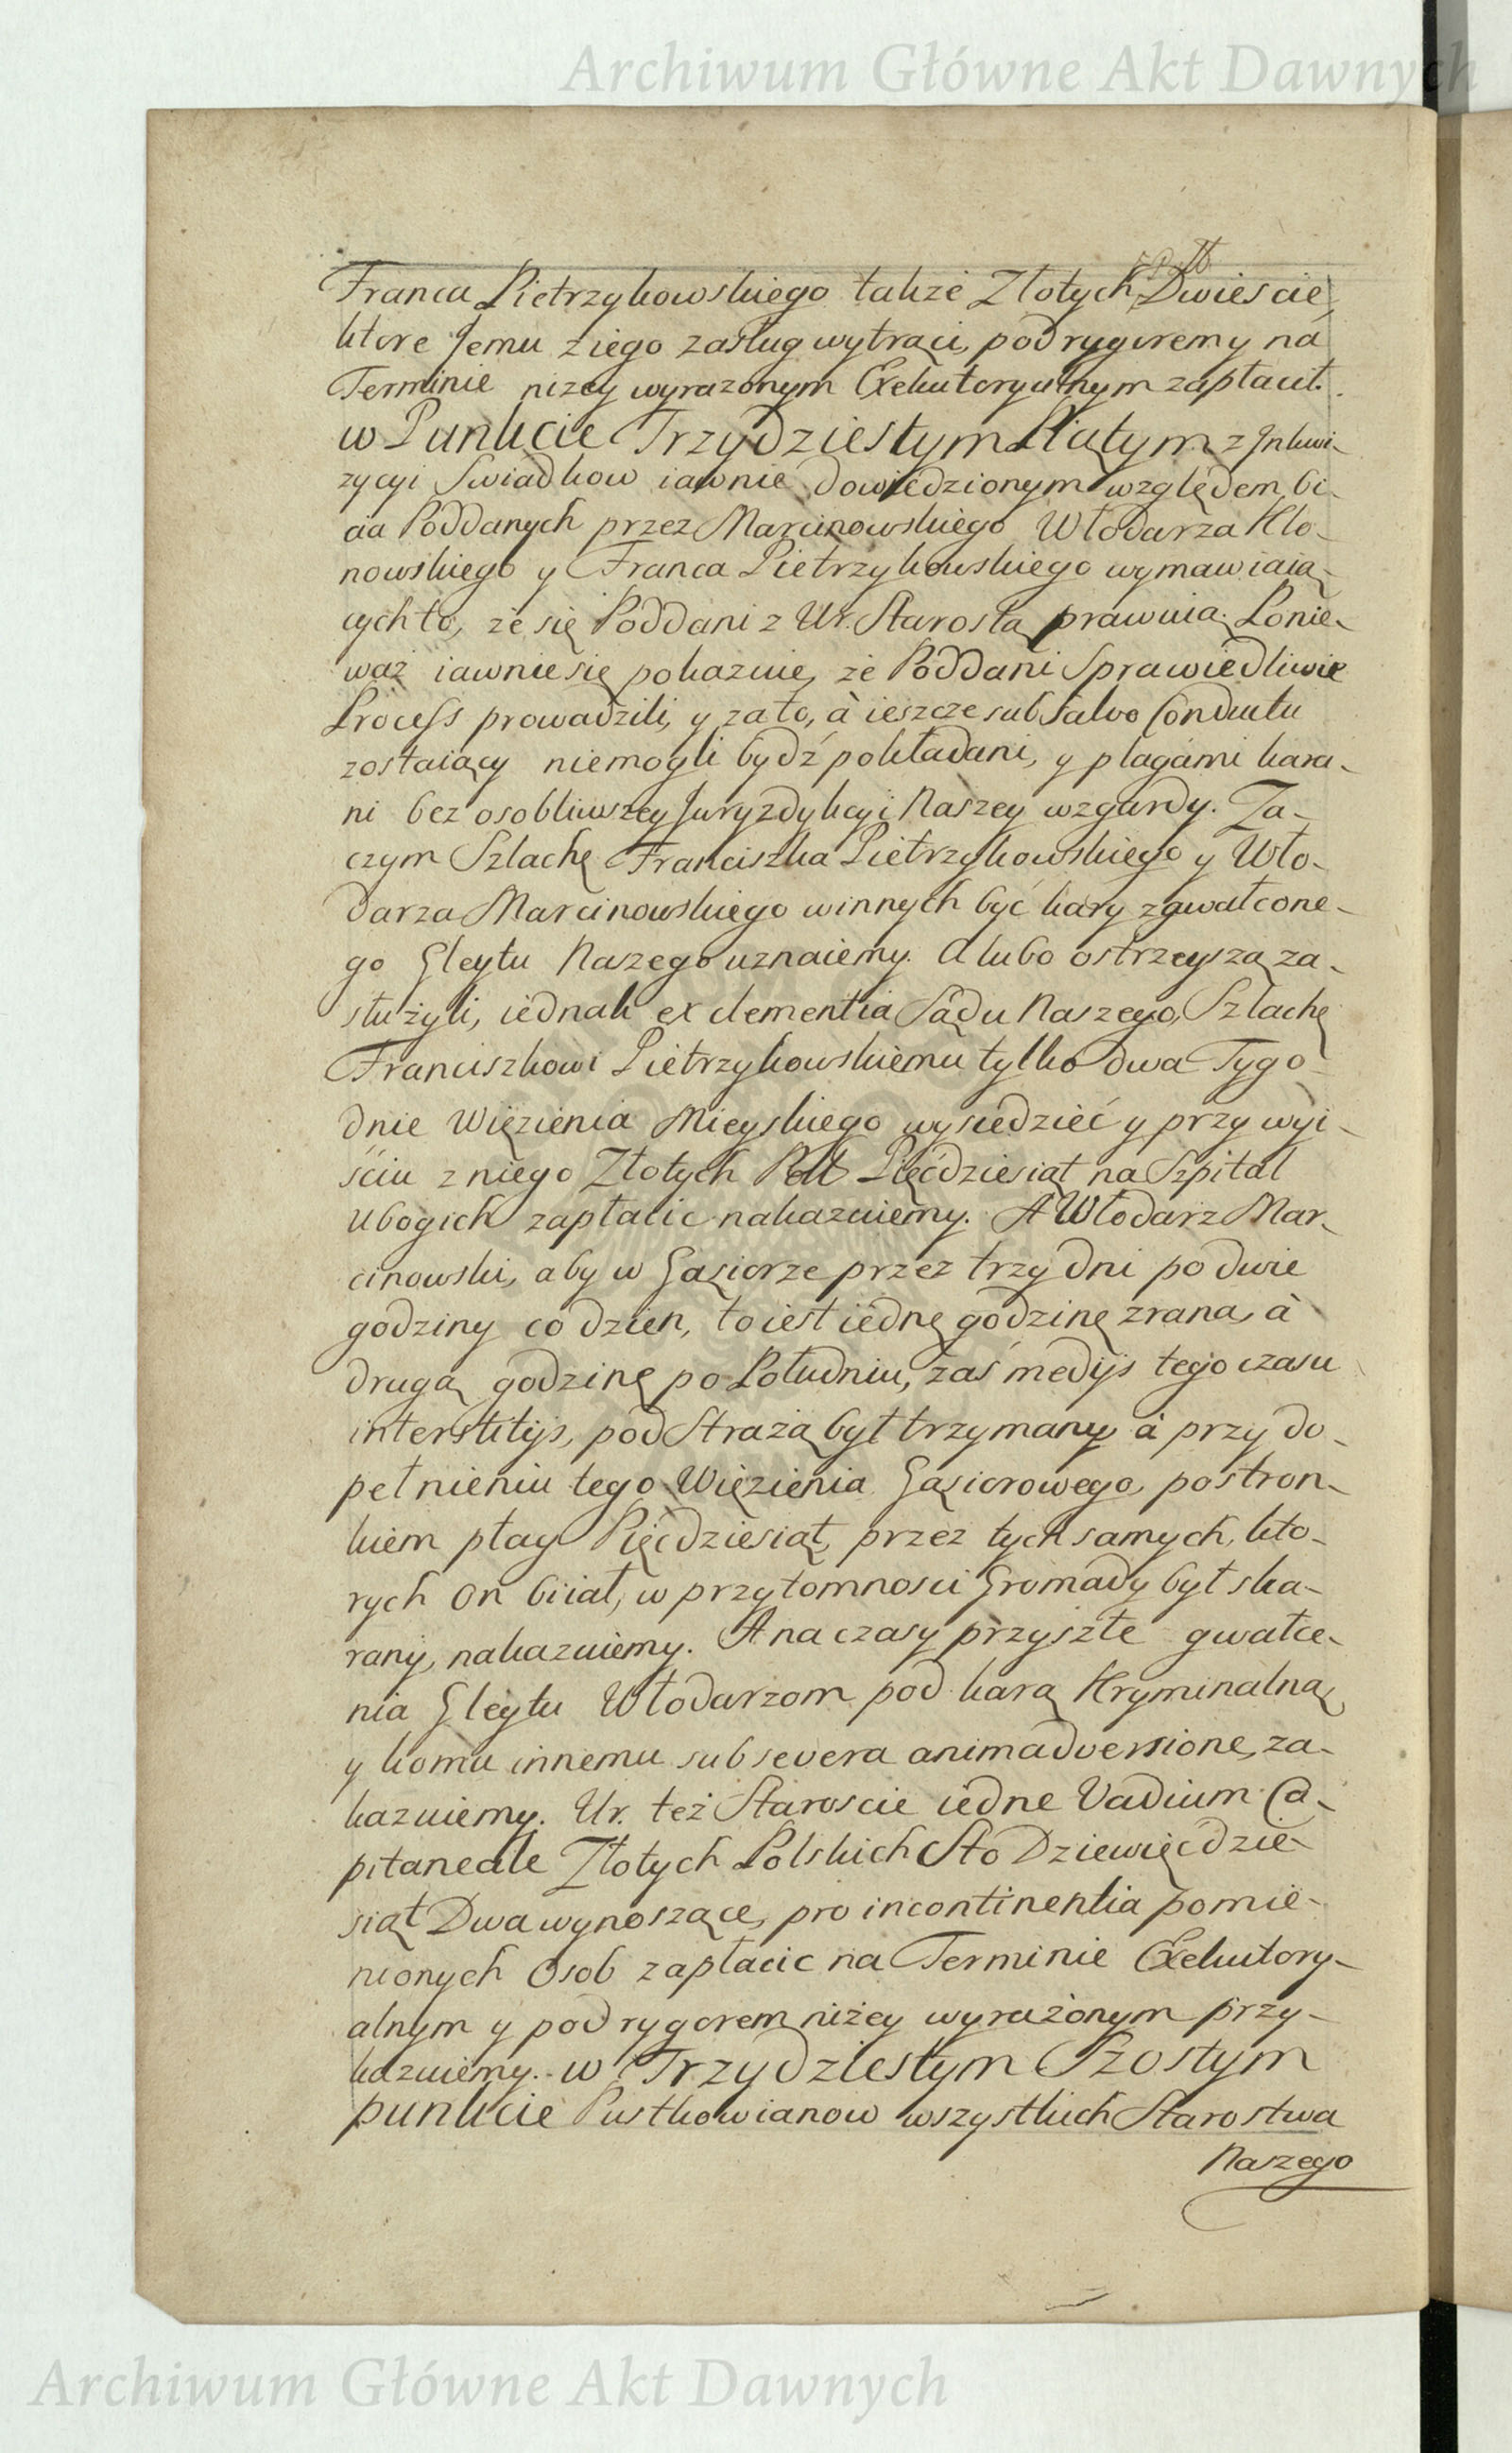 Archiwum Główne Akt Dawnych
Polt
Franca Pietrzykowskiego także Złotych Dwieście,
ktore Jemu z iego zasług wytrąci, pod rygoremy na
Terminie niżey wyrażonym Exekutoryalnym zapłacił.
w Punkcie Trzydziestym Piątym z Inkwi-
zycyi Swiadkow iawnie dowiedzionym względem bi-
cia Poddanych przez Marcinowskiego Włodarza Kło-
nowskiego y Franca Pietrzykowskiego wymawiaią-
cych to, że się Poddani z Ur. Starostą prawuią. Ponie-
waż iawnie się pokazuie, że Poddani Sprawiedliwie
Process prowadzili, y za to, à ieszcze sub Salvo Conductu
zostaiący niemogli bydź pokładani, y plagami kara-
ni bez osobliwszey Juryzdykcyi Naszey wzgardy. Za-
czym Szlachę Franciszka Pietrzykowskiego y Wło-
darza Marcinowskiego winnych być kary zgwałcone-
go Gleytu Naszego uznaiemy. A lubo ostrzeyszą za-
służyli, iednak ex clementia Sądu Naszego, Szlachę
Franciszkowi Pietrzykowskiemu tylko dwa Tygo-
dnie Więzienia Mieyskiego wysiedzieć y przy wyi-
ściu z niego Złotych Polt Pięćdziesiąt na Szpital
Ubogich zapłacic nakazuiemy. A Włodarz Mar-
cinowski, aby w Gąsiorze przez trzy dni po dwie
godziny co dzien, to iest iednę godzinę z rana, à
drugą godzinę po Południu, zaś medijs tego czasu
interstitijs, pod Strażą był trzymany à przy do-
pełnieniu tego Więzienia Gąsiorowego, postron-
kiem płag Pięcdziesiąt, przez tych samych, kto-
rych on biiał, w przytomnosci Gromady był ska-
rany, nakazuiemy. A na czasy przyszłe gwałce-
nia Gleytu Włodarzom pod karą Kryminalną
y komu innemu sub severa animadversione, za-
kazuiemy. Ur. też Staroscie iedne Vadium Ca-
pitaneale Złotych Polskich Sto Dziewięcdzie-
siąt Dwa wynoszące, pro incontinentia pomie-
nionych Osob zapłacic na Terminie Exekutory-
alnym y pod rygorem niżey wyrażonym przy-
kazuiemy. w Trzydziestym Szostym
punkcie Pustkowianow wszystkich Starostwa
Naszego
Archiwum Główne Akt Dawnych